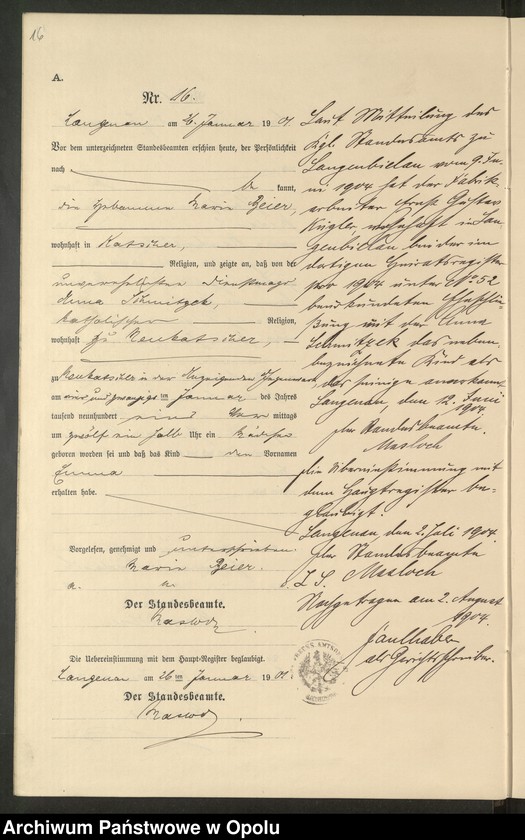 16
A.
Nr. 16.
Langenau am 26. Januar 1901.
Vor dem unterzeichneten Standesbeamten erschien heute, der Persönlichkeit
nach
kannt,
die Hebamme Maria Beier,
wohnhaft in Katscher,
Religion, und zeigte an, daß von der
unverehelichten Dienstmagd
Anna Schmitzek,
katholischer Religion,
wohnhaft zu Neukatscher,
zu Neukatscher in der Anzeigenden Gegenwart
am vier und zwanzigsten Januar des Jahres
tausend neunhundert eins Vor mittags
um zwölf ein halb Uhr ein Mädchen
geboren worden sei und daß das Kind den Vornamen
Emma
erhalten habe.
Vorgelesen, genehmigt und unterschrieben.
Maria Beier.
Der Standesbeamte.
Die Uebereinstimmung mit dem Haupt-Register beglaubigt.
Langenau am 26ten Januar 1901.
Der Standesbeamte.
Laut Mitteilung des
Kgl. Standesamts zu
Langenbielau vom 9. Ju-
ni 1904 hat der Fabrik-
arbeiter Ernst Gustav
Kügler, wohnhaft in Lan-
genbielau bei der im
dortigen Heiratsregister
pro 1904 unter No 52
beurkundeten Eheschlie-
ßung mit der Anna
Schmitzek das neben-
bezeichnete Kind als
das seinige anerkannt.
Langenau, den 12. Juni
1904.
Der Standesbeamte.
Masloch
Die Übereinstimmung mit
dem Hauptregister be-
glaubigt.
Langenau den 2. Juli 1904.
Der Standesbeamte
L. S. Masloch
Nachgetragen am 2. August
1904.
als Gerichtsschreiber.
Archiwum Państwowe w Opolu